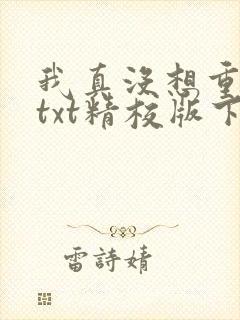 我真没想重
txt精校版下
雷詩婧